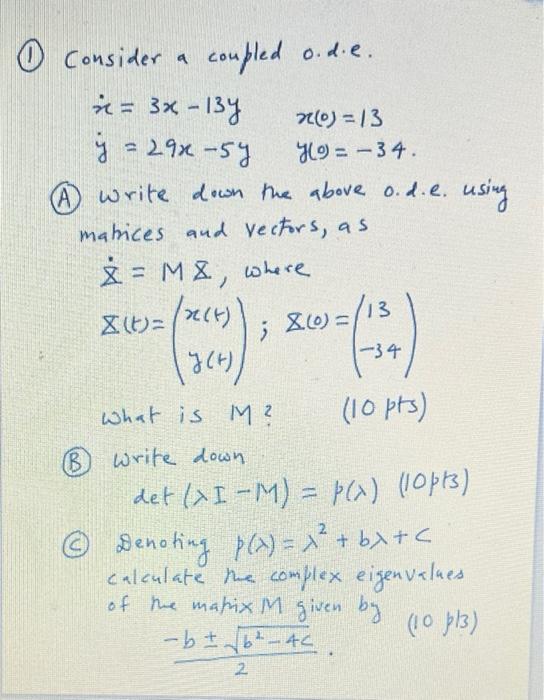 ① Consider a coupled o.d.e.
ẋ = 3x - 13y x(0) = 13
ẏ = 29x - 5y y(0) = -34.
Ⓐ write down the above o.d.e. using
matrices and vectors, as
Ẋ = M X, where
X(t) = (x(t) y(t)) ; X(0) = (13 -34)
what is M? (10 pts)
Ⓑ write down
det (λI - M) = p(λ) (10 pts)
Ⓒ Denoting p(λ) = λ² + bλ + c
calculate the complex eigenvalues
of the matrix M given by (10 pts)
-b ± √b² - 4c / 2 .